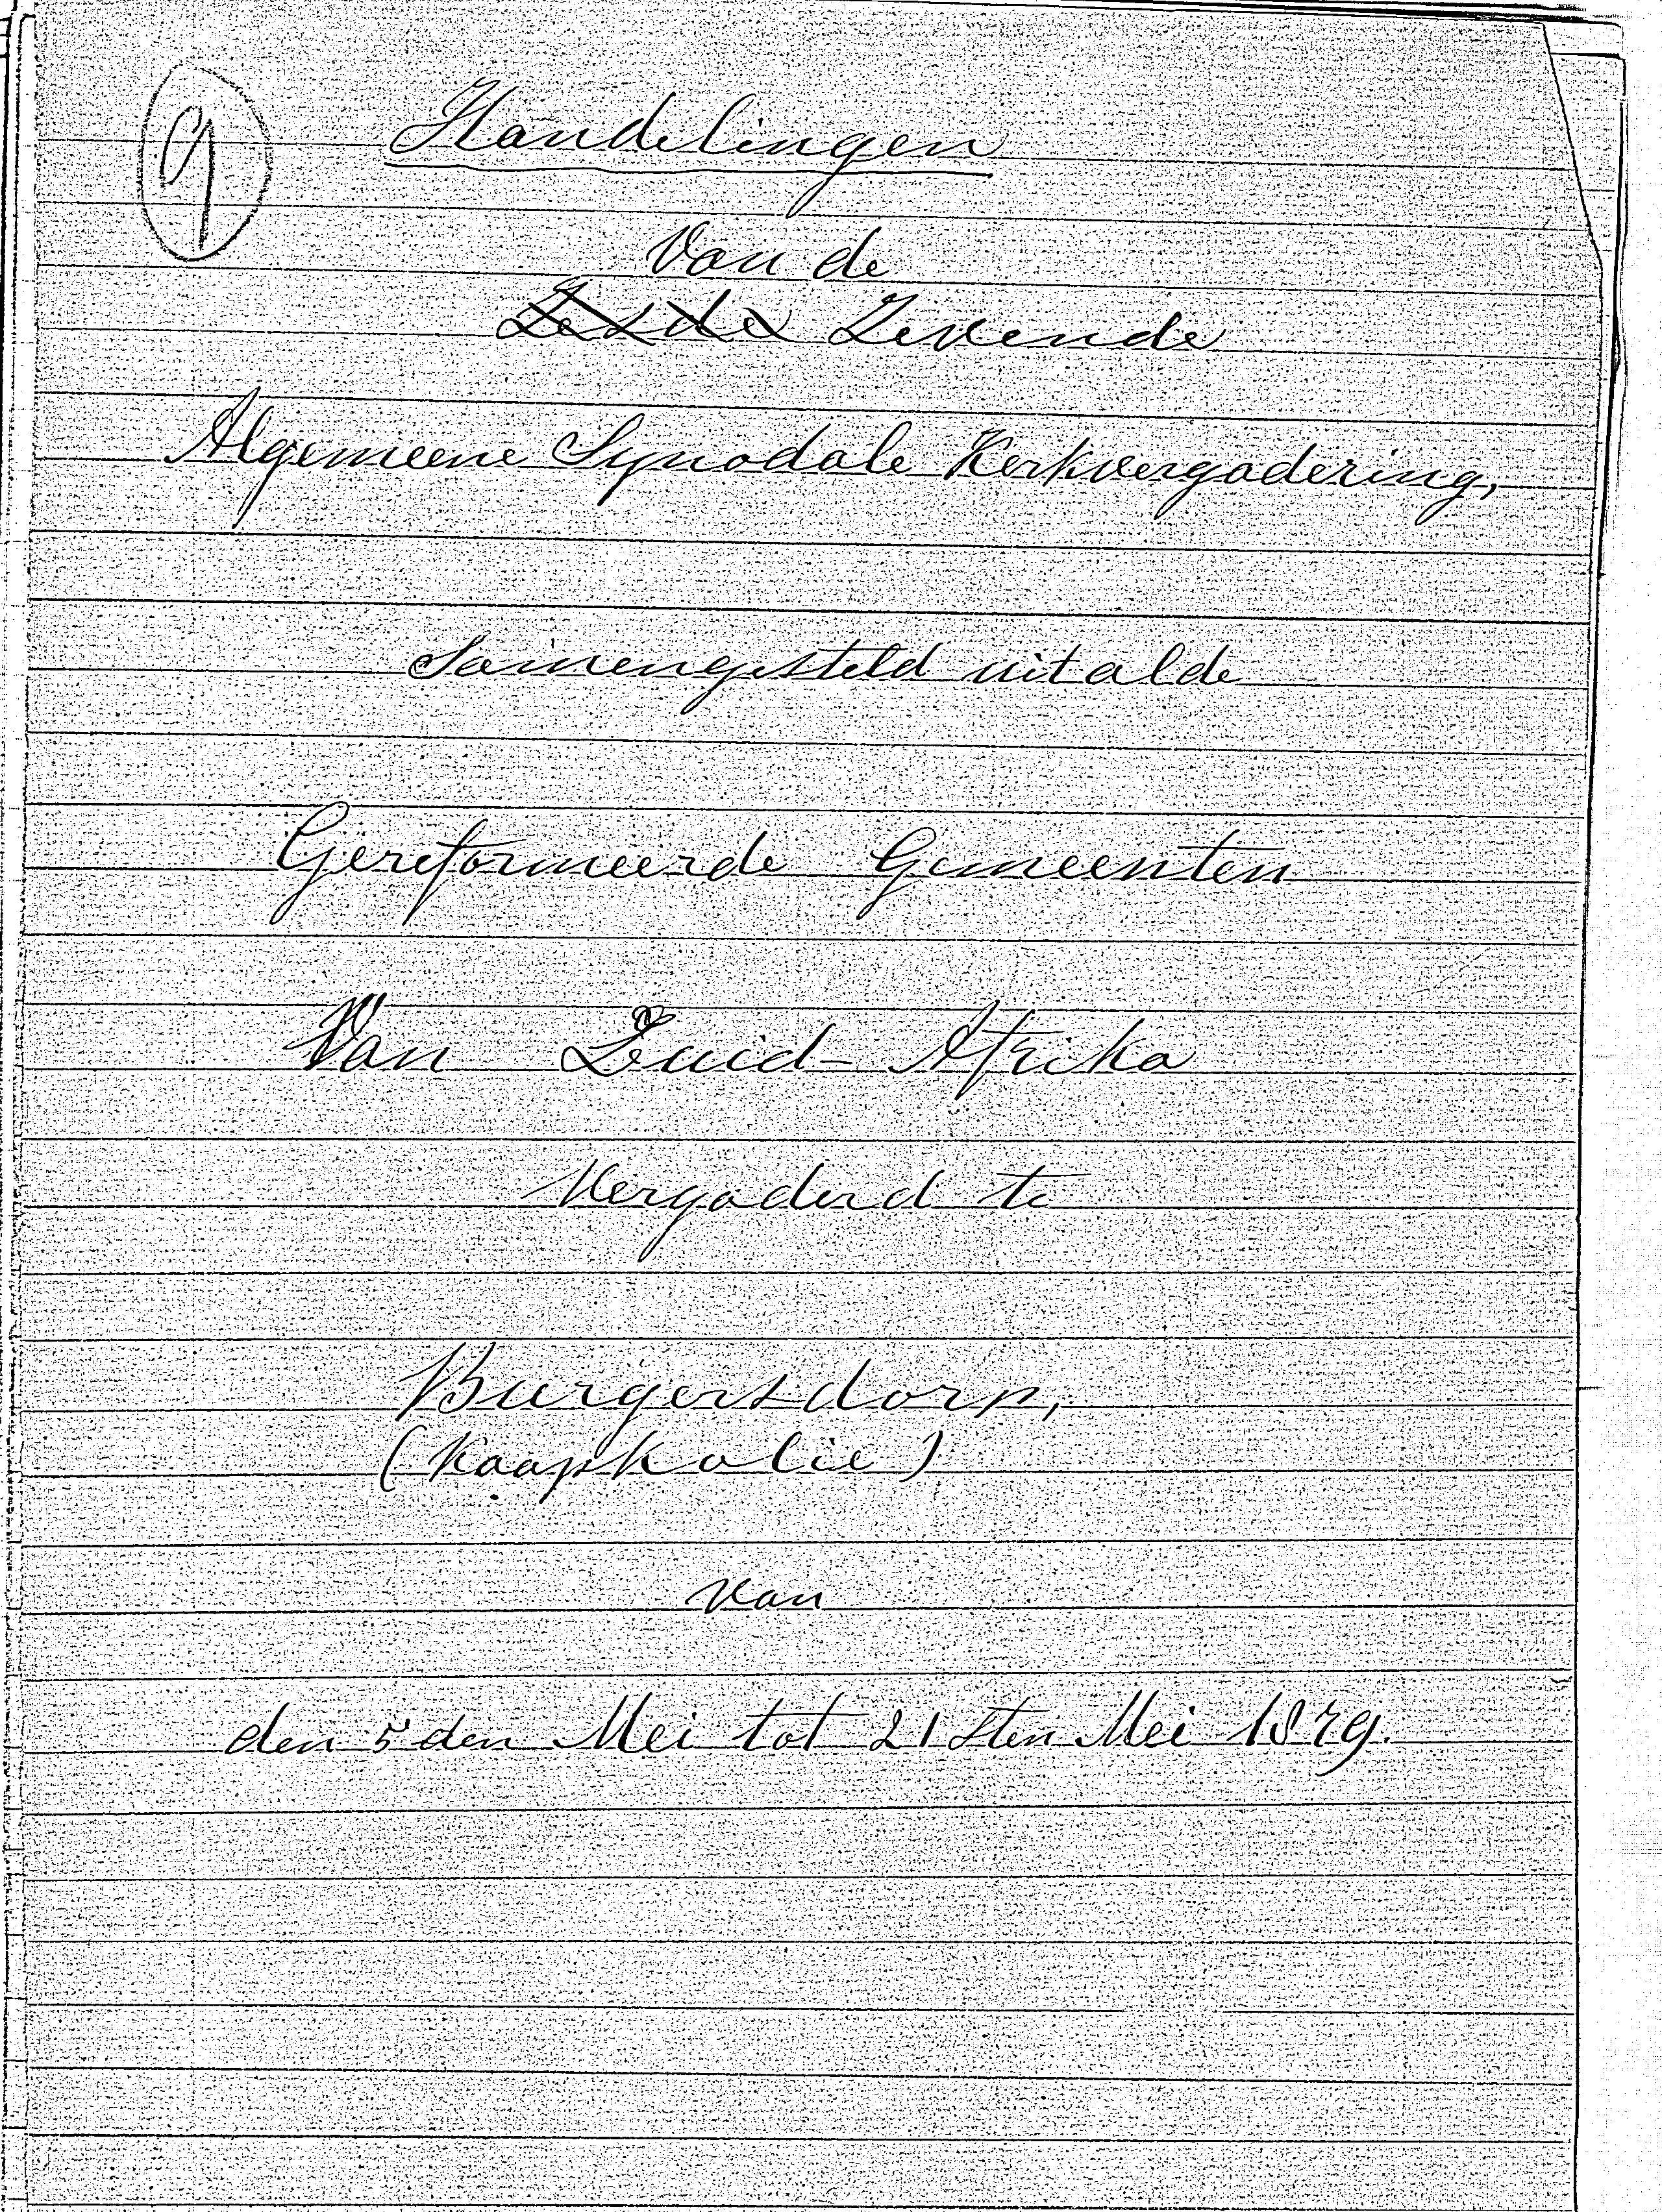 9
Handelingen
Van de
Zesde Zevende
Algemeene Synodale Kerkvergadering,
Samengesteld uit al de
Gereformeerde Gemeenten
Van Zuid-Afrika
Vergaderd te
Burgersdorp,
(Kaapkolie)
van
den 5den Mei tot 21sten Mei 1879.